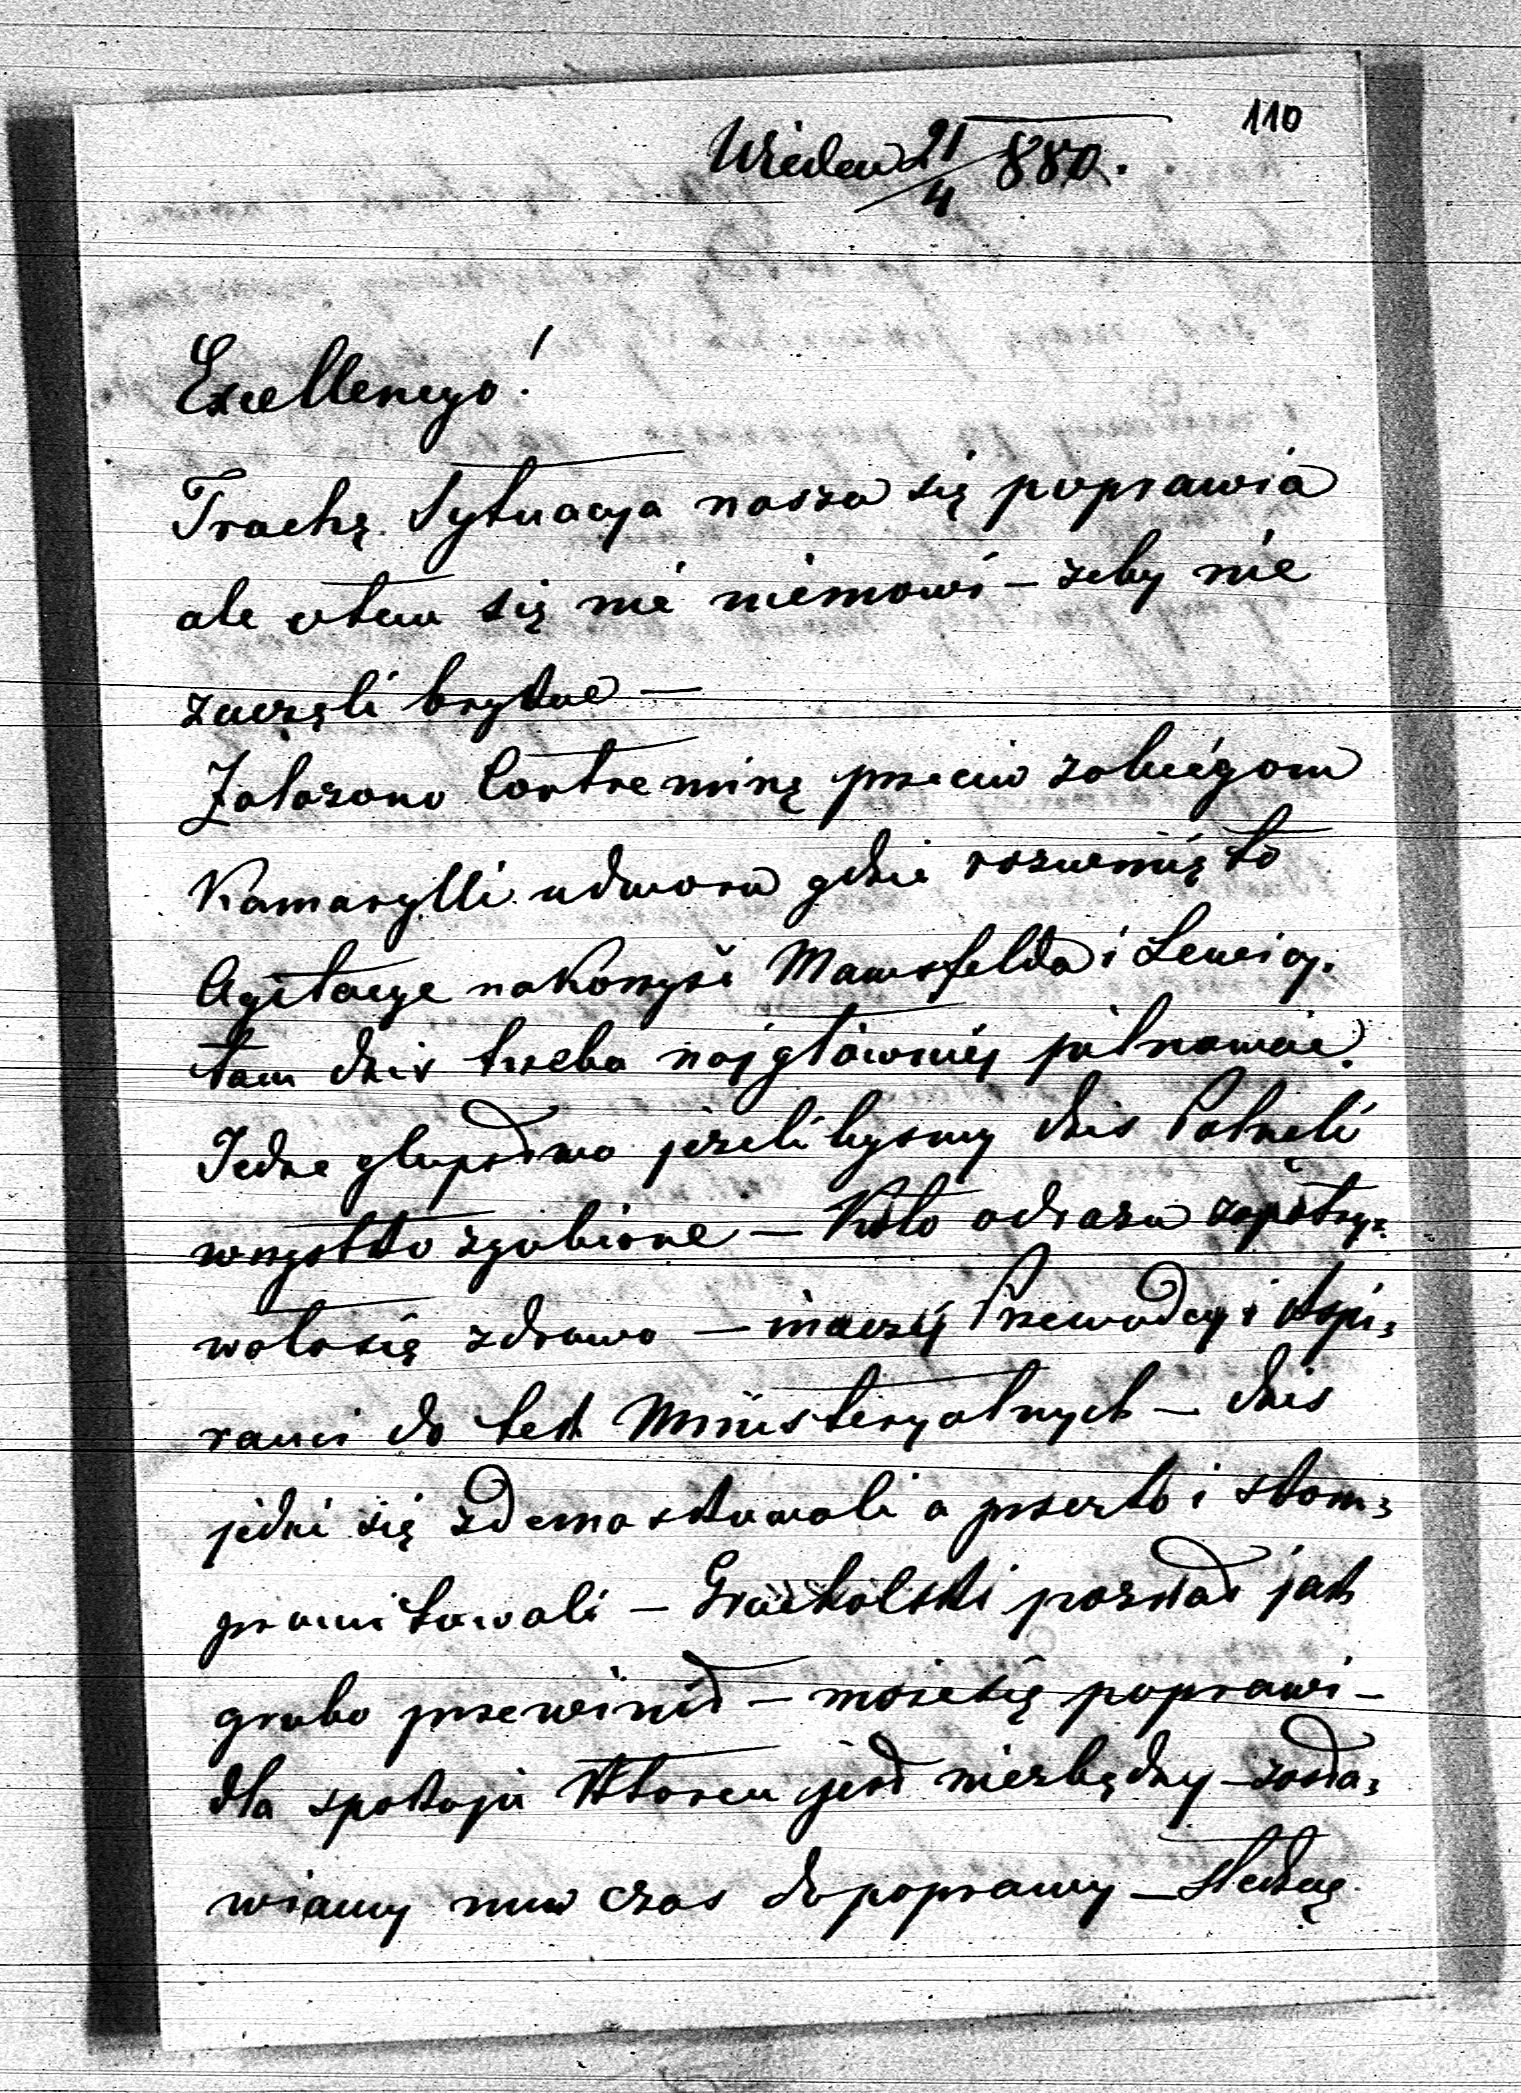 110
Wiedeń 21/4 880.
Excellencyo!
Trochę Sytuacya nasza się poprawia
ale o tem się nie niemowi – zeby nie
zaczęli brykac –
Założono Contreminę przeciw zabiegom
Kamarylli u dworu gdzie rozwinięto
Agitacye na korzyść Mannsfelda i
tam dzis trzeba najgłówniej pilnowac.
Jedne glupstwo jezelibysmy dzis Palneli
wszystko zgubione – Koło odrazu zapatry=
wało się zdrowo – inaczej Przewodcy i Aspi=
ranci do tek Ministeryalnych – dzis
jedni się zdemaskowali a przez to i skom=
promitowali – Grocholski poznał jak
grubo przewinił – moze się poprawi –
dla spokoju jest niezbędny – zosta=
wiamy mu czas do poprawy –